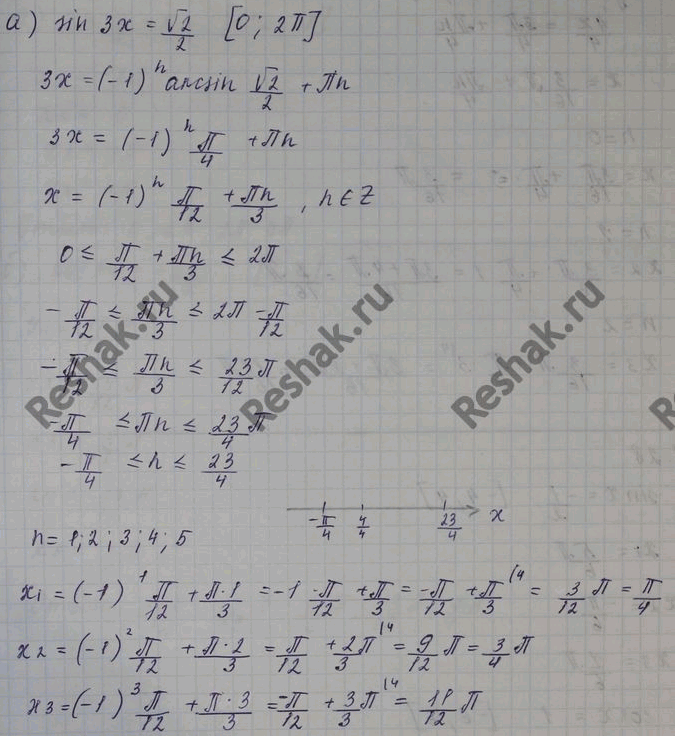 а) sin 3x = √2/2 [0; 2π]
3x = (-1)^n arcsin √2/2 + πn
3x = (-1)^n π/4 + πn
x = (-1)^n π/12 + πn/3, n ∈ Z
0 ≤ π/12 + πn/3 ≤ 2π
-π/12 ≤ πn/3 ≤ 2π - π/12
-π/12 ≤ πn/3 ≤ 23/12 π
-π/4 ≤ πn ≤ 23/4 π
-π/4 ≤ n ≤ 23/4
-π/4 4/4 23/4 x
n = 1; 2; 3; 4; 5
x₁ = (-1)^1 π/12 + π·1/3 = -1 · π/12 + π/3 = -π/12 + π/3 (4 = 3/12 π = π/4
x₂ = (-1)^2 π/12 + π·2/3 = π/12 + 2π/3 (4 = 9/12 π = 3/4 π
x₃ = (-1)^3 π/12 + π·3/3 = -π/12 + 3π/3 (4 = 11/12 π
Reshak.ru
Reshak.ru
Reshak.ru